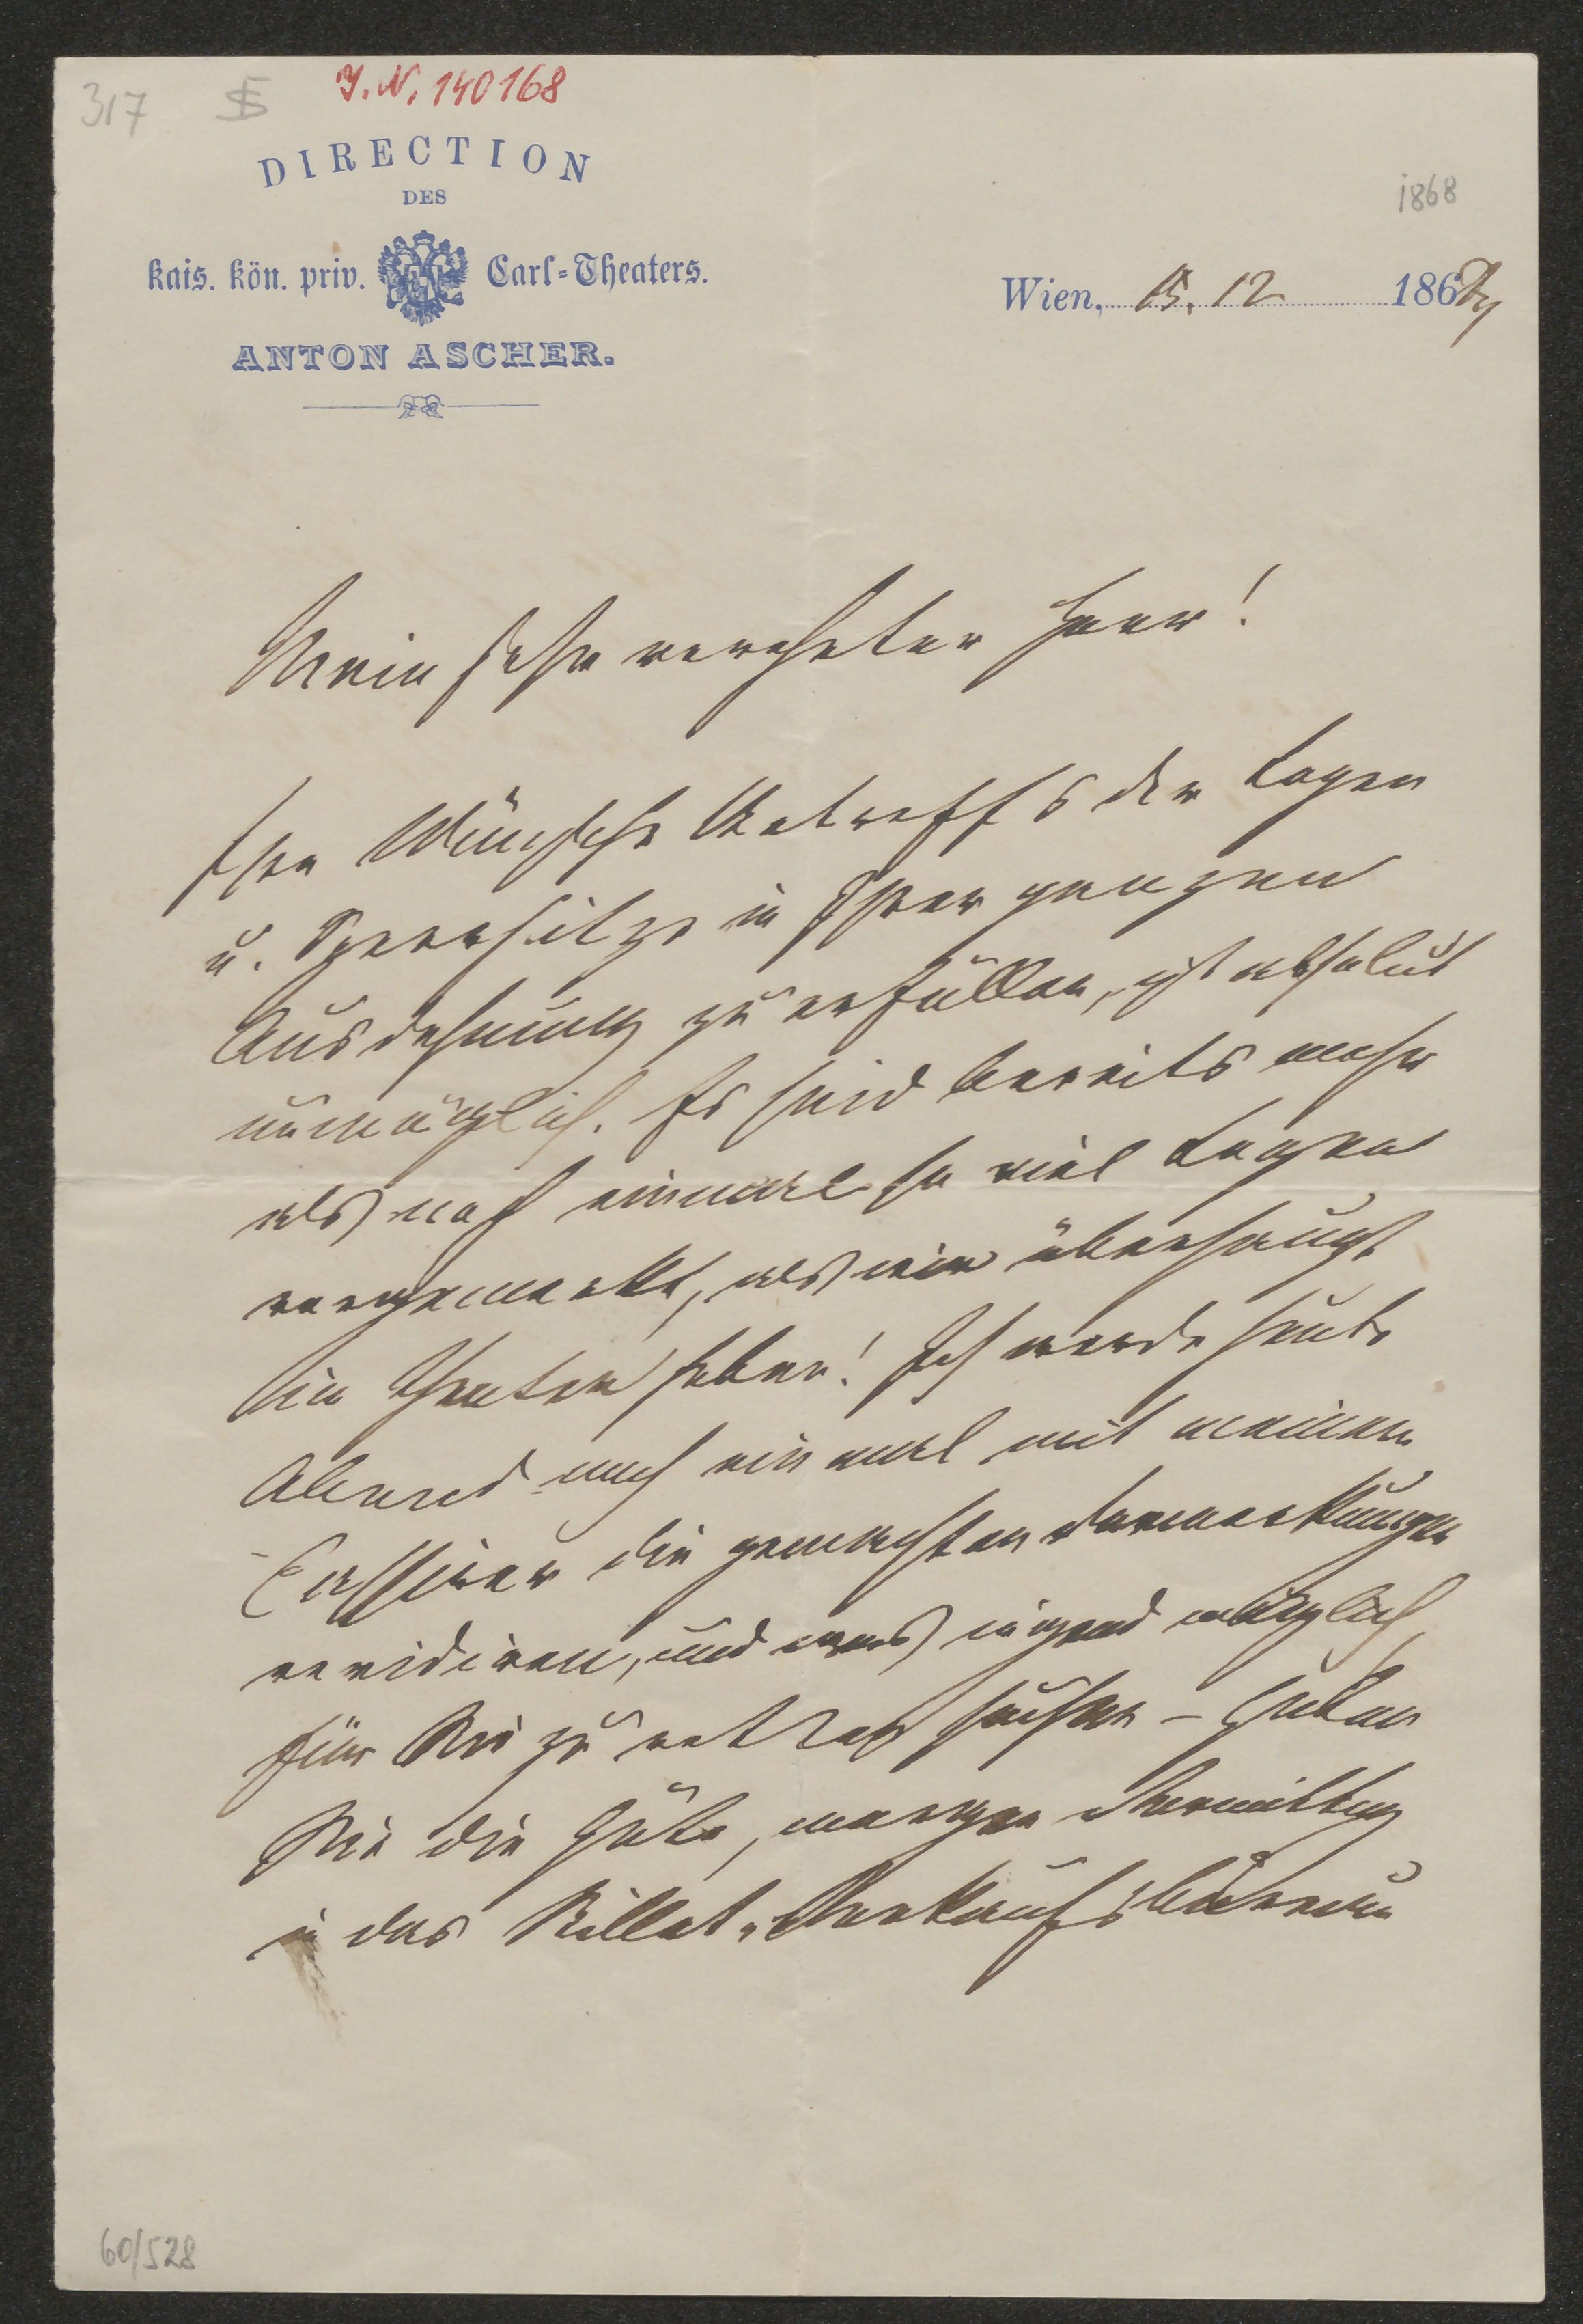 317
I.N. 140168
DIRECTION
DES
kais. kön. priv. Carl=Theaters.
ANTON ASCHER.
1868
Wien, 15. 12 1868
Mein sehr verehrter Herr!
Ihre Wünsche Betreffs der Logen
u. Sperrsitze in Ihrer ganzen
Ausdehnung zu erfüllen, ist absolut
unmöglich. Es sind bereits mehr
als noch einmal so viel Logen
vorgemerkt, als wir überhaupt
im Theater haben! Ich werde heute
Abend noch ein mal mit meinem
Cassirer die gemachten Vormerkungen
revidiren, und was irgend möglich
für Sie zu retten suchen – Haben
Sie die Güte, morgen Vormittag
in das Billet-Verkaufsbüreau
60/528